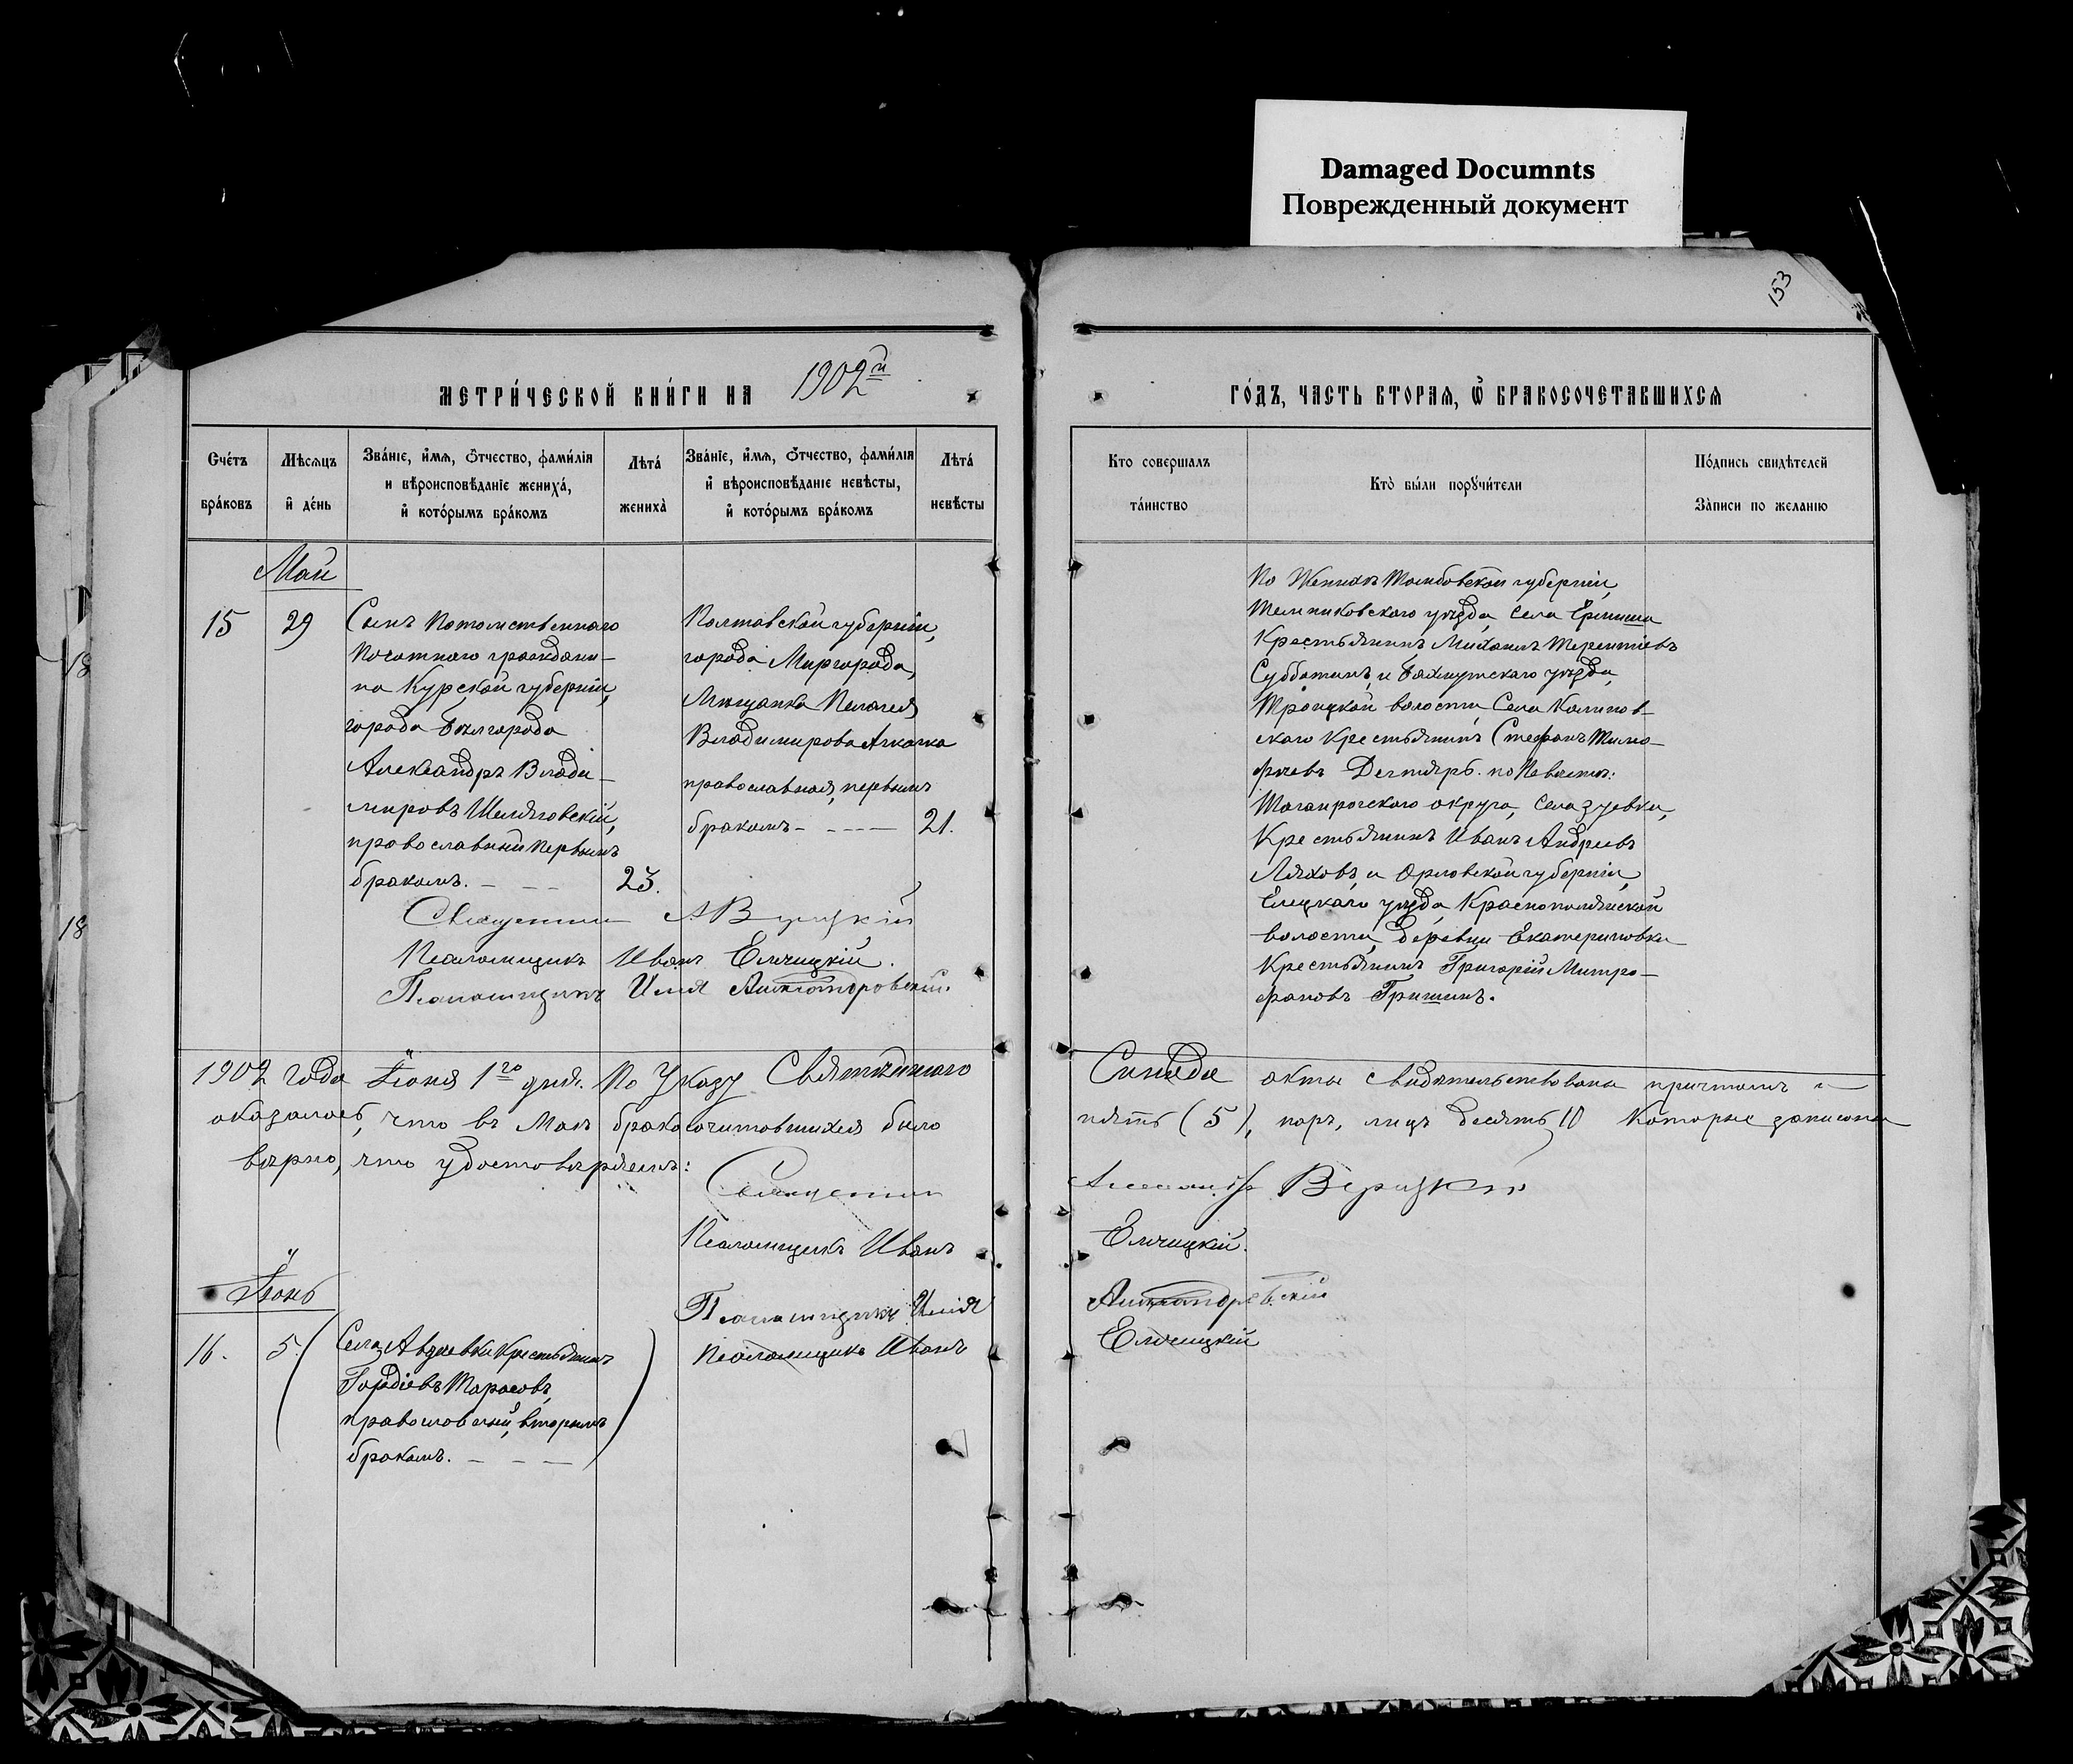 Damaged Documnts
Поврежденный документ
153
МЕТРИ́ЧЕСКОЙ КНИ́ГИ НА 1902й
ГО́ДЪ, ЧАСТЬ ВТОРАѦ, Ѿ БРАКОСОЧЕТАВШИХСѦ
Сче́тъ бра́ковъ
Мѣсѧцъ и҆ де́нь
Зва́нїе, и҆́мѧ, ѻ҆́тчество, фами́лїѧ
и вѣроисповѣданїе жениха́,
и҆ кото́рымъ бра́комъ
Лѣта́ жениха̀
Зва́нїе, и҆́мѧ, ѻ҆́тчество, фами́лїѧ
и҆ вѣроисповѣданїе невѣсты,
и҆ кото́рымъ бра́комъ
Лѣта́ невѣсты
Кто совершалъ
та́инство
Кто̀ бы́ли порꙋчи́тели
По́дпись свидѣтелей
За̀писи по желанїю
Май
15
29
Сынъ Потомственнаго
Почотнаго граждани-
на Курской губерніи,
города Бѣлгорода
Александръ Влади-
міровъ Шеляговскій,
православный первымъ
бракомъ. - - -
23.
Полтавской губерніи,
города Миргорода,
Мѣщанка Пелагея
Владимирова
православная, первымъ
бракомъ - - - -
21.
По Женихѣ Тамбовской губерніи,
Темниковскаго уѣзда, села Ермиша
Крестьянинъ Михаилъ Терентіевъ
Субботинъ, и Бахмутскаго уѣзда,
Троицкой волости, Села Калинов-
скаго Крестьянинъ Стефанъ Тимо-
фѣевъ Дегтярь. по Невѣстѣ:
Таганрогскаго округа, села Зуевки,
Крестьянинъ Иванъ Андреевъ
Ляховъ, и Орловской губерніи,
Елецкаго уѣзда, Краснополянской
волости, деревни Екатериновки
Крестьянинъ Григорій Митро-
фановъ Гришинъ.
Священникъ А Верицкій
Псаломщикъ Иванъ Елчицкій.
Псаломщикъ Илія Александровскій.
1902 года Іюня 1го дня. По Указу Святѣйшаго Синода акты свидѣтельствованы причтомъ и
оказалось, что въ Маѣ бракосочитавшихся было пять (5), паръ, лицъ десять 10 Которые записаны
вѣрно, что удостовѣряемъ:
Священникъ Александръ Верицкій
Псаломщикъ Иванъ Елчицкій.
Псаломщикъ Илія Александровскій
Псаломщикъ Иванъ Елчицкій
Іюнь
16.
5
Села Авдѣевки Крестьянинъ
Гордіевъ Тарасовъ,
православный, вторымъ
бракомъ. - - -
18
18